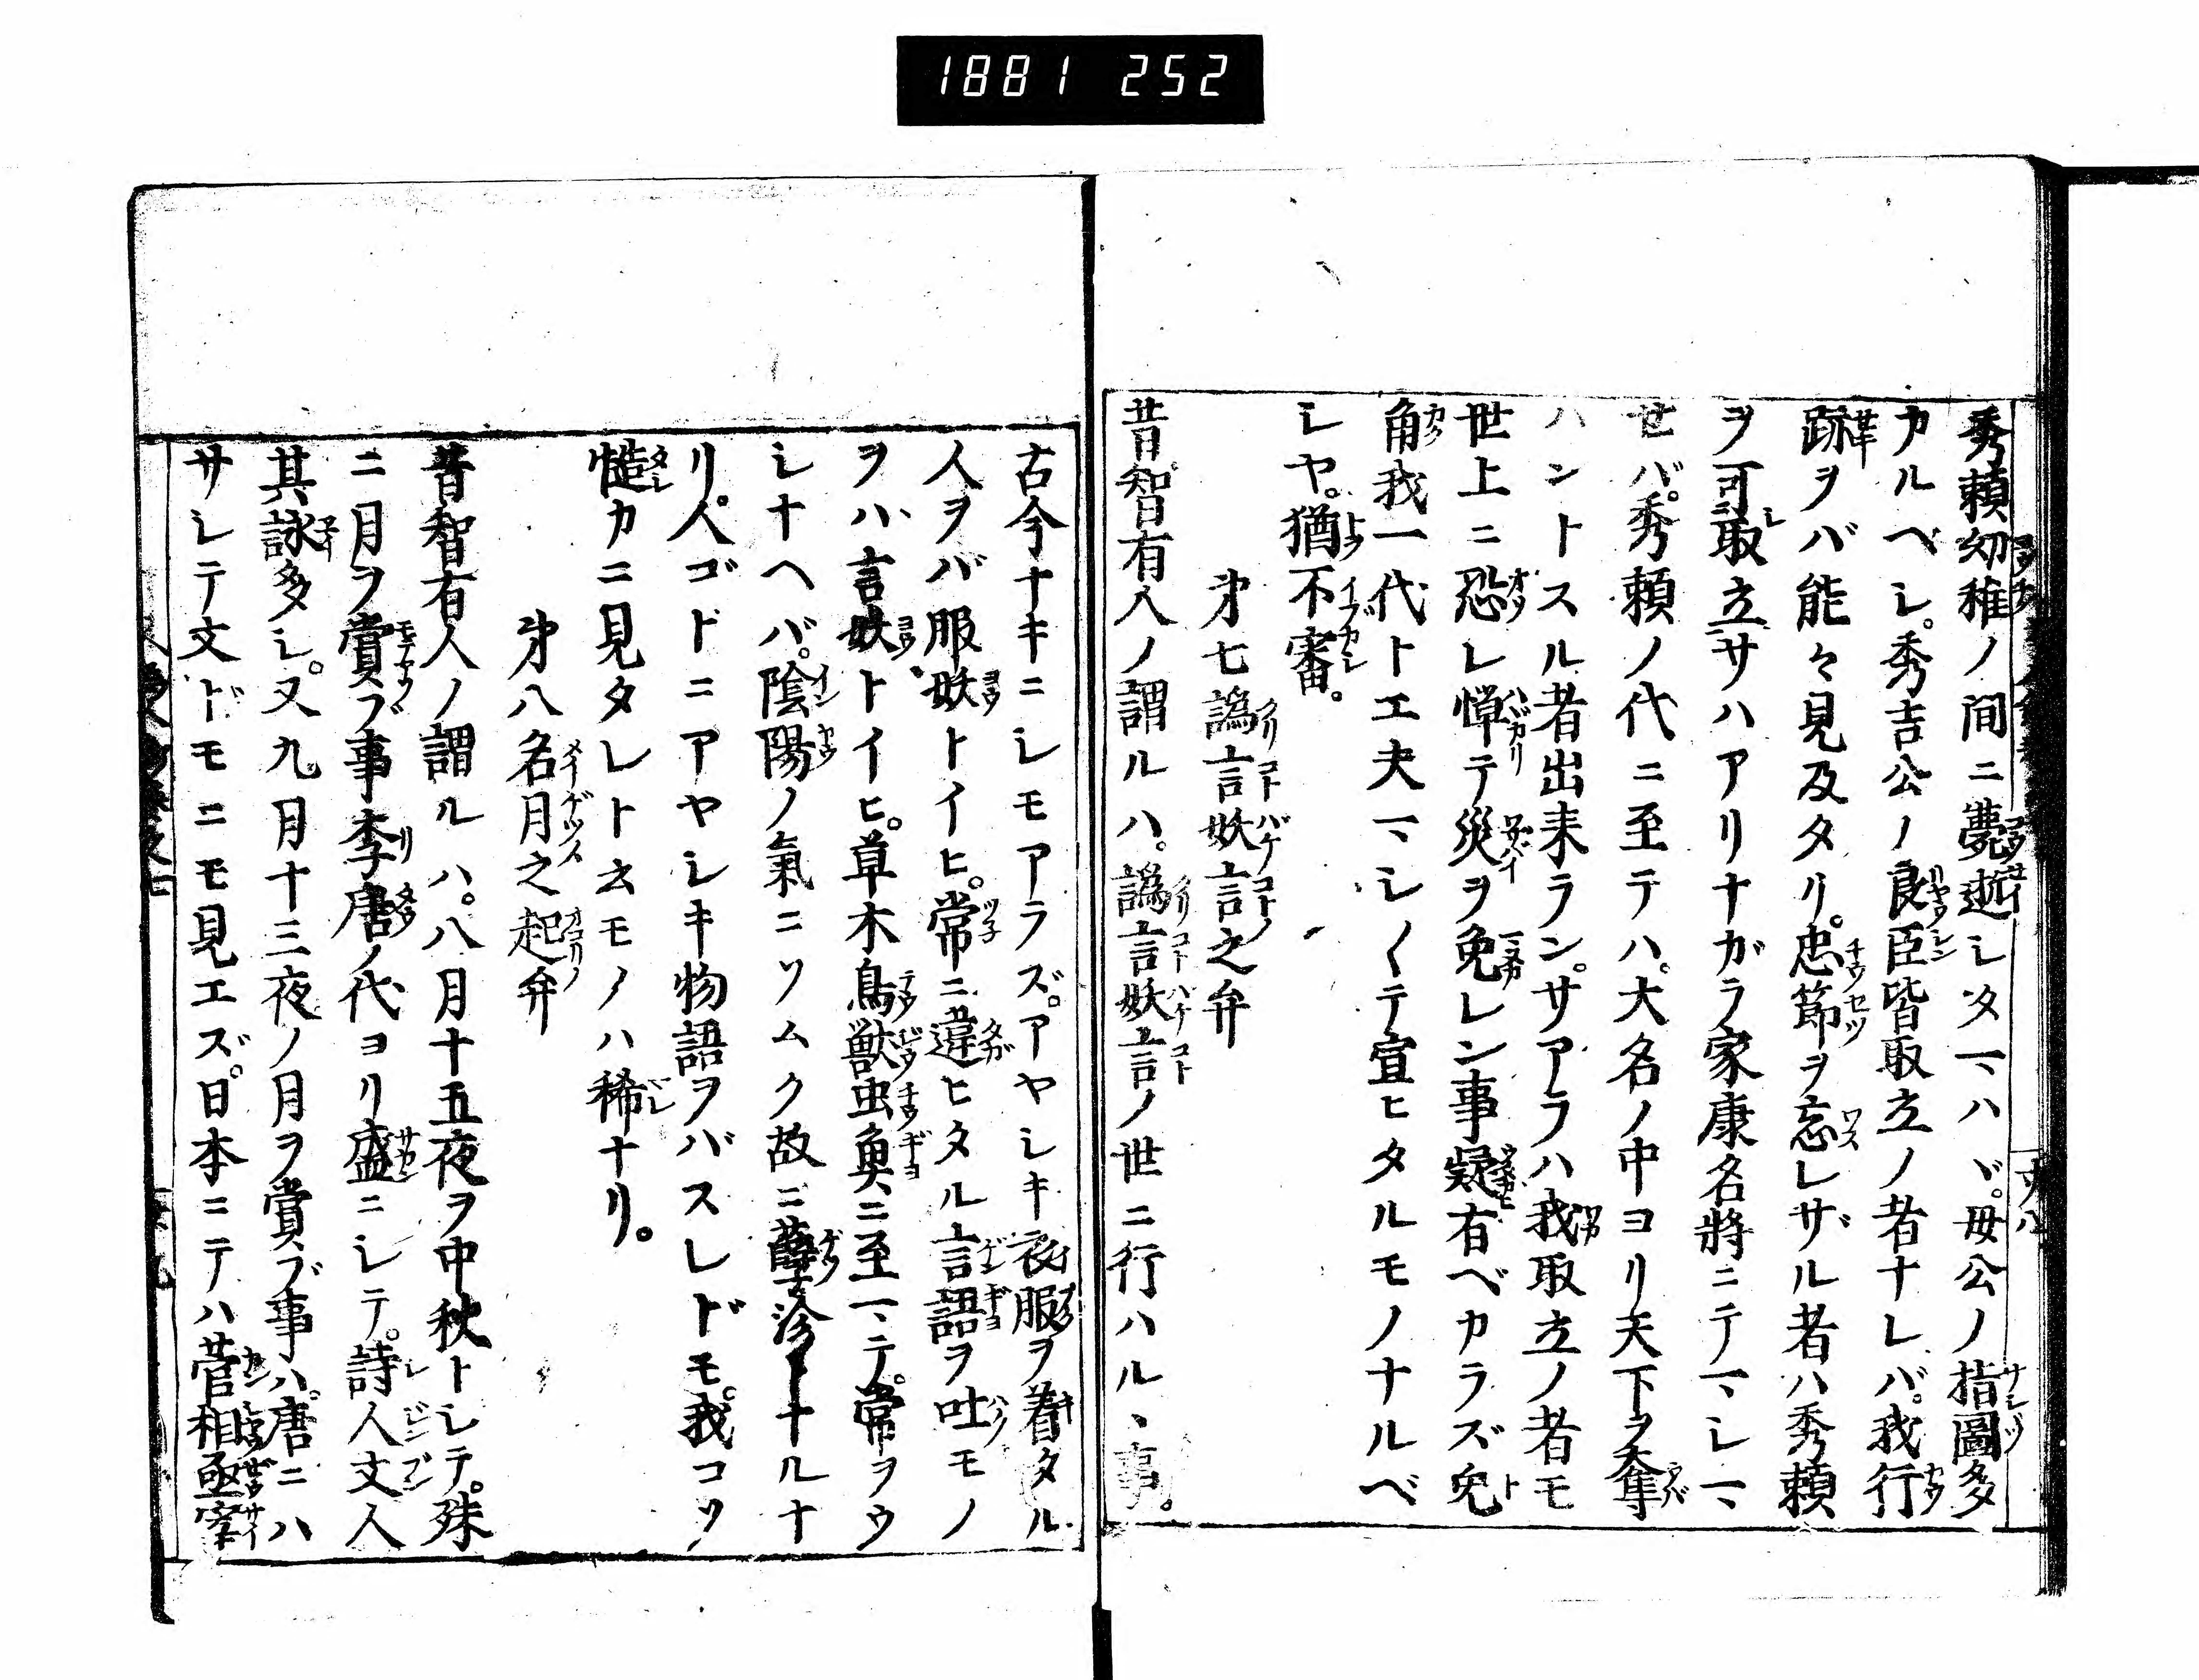 1881 252
秀頼幼稚ノ間ニ薨逝シタマハヾ。母公ノ指圖多
カルベシ。秀吉公ノ良臣皆取立ノ者ナレバ。我行
跡ヲバ能々見及タリ。忠節ヲ忘レザル者ハ秀頼
ヲ可取立サハアリナガラ家康名將ニテマシマ
セバ。秀頼ノ代ニ至テハ。大名ノ中ヨリ天下ヲ奪
ハントスル者出来ラン。サアラハ我取立ノ者モ
世上ニ恐レ憚テ災ヲ免レン事疑有ベカラズ兎
角我一代ト工夫マシ〱テ宣ヒタルモノナルベ
シヤ。猶不審。
第七譌言妖言之弁
昔智有人ノ謂ルハ。譌言妖言ノ世ニ行ハルヽ事。
古今ナキニシモアラズ。アヤシキ衣服ヲ着タル
人ヲバ服妖トイヒ。常ニ違ヒタル言語ヲ吐モノ
ヲハ言妖トイヒ。草木鳥獣虫魚ニ至マテ。常ヲウ
シナヘバ。陰陽ノ氣ニソムク故ニ孽沴トナルナ
リ。人ゴトニアヤシキ物語ヲバスレドモ。我コソ
慥カニ見タレト云モノハ稀ナリ。
第八名月之起弁
昔智有人ノ謂ルハ。八月十五夜ヲ中秋トシテ。殊
ニ月ヲ賞ブ事李唐ノ代ヨリ盛ニシテ。詩人文人
其詠多シ。又九月十三夜ノ月ヲ賞ブ事ハ。唐ニハ
サシテ文ドモニモ見エズ。日本ニテハ菅相亟宰